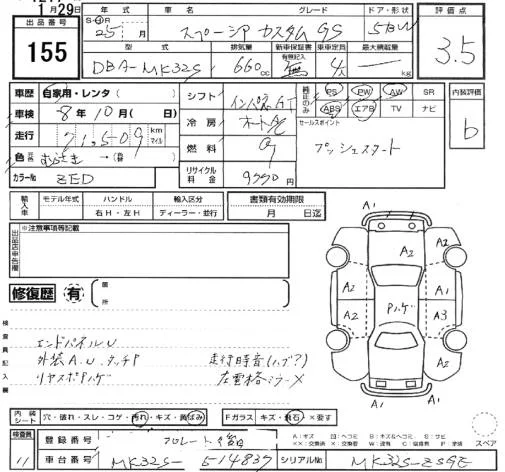 1月29日
出品番号
155
年式
車名
グレード
ドア・形状
評価点
S・H・R
25
月
スペーシア カスタム GS
5BW
3.5
型式
排気量
新車保証書
有無記入
乗車定員
最大積載量
DBA-MK32S
660
cc
無
4
人
kg
車歴
自家用・レンタ(
)
シフト
インパネAT
純正のみ
PS
PW
AW
SR
ABS
エアB
TV
ナビ
内装評価
b
車検
8年 10月(
日)
冷房
オートAC
セールスポイント
プッシュスタート
走行
71,509
km
マイル
燃料
色
むらさき →
カラーNo
ZED
リサイクル料金
9990
円
輸入車
モデル年式
ハンドル
右H・左H
輸入区分
ディーラー・並行
書類有効期限
月
日迄
※注意事項等記載
修復歴
有
箇所
検査員記入欄
エンドパネルU
外装A.U.タッチP
走行時音(ハブ?)
リヤスポPハゲ
左電格ミラーX
A1
A2
A2
A2
A2
A1
Pハゲ
A2
A3
A2
A1
スペア
内装シート
穴・破れ・スレ・コゲ・汚れ・キズ・黄ばみ
Fガラス
キズ・飛石・X要す
A:キズ
U:ヘコミ
B:キズ&ヘコミ
S:サビ
XX:交換済
X:交換要
W:波有
C:腐蝕有
P:塗装
検査員
11
登録番号
プレート後日
車台番号
MK32S-514839
シリアルNo
MK32S-ZSGE